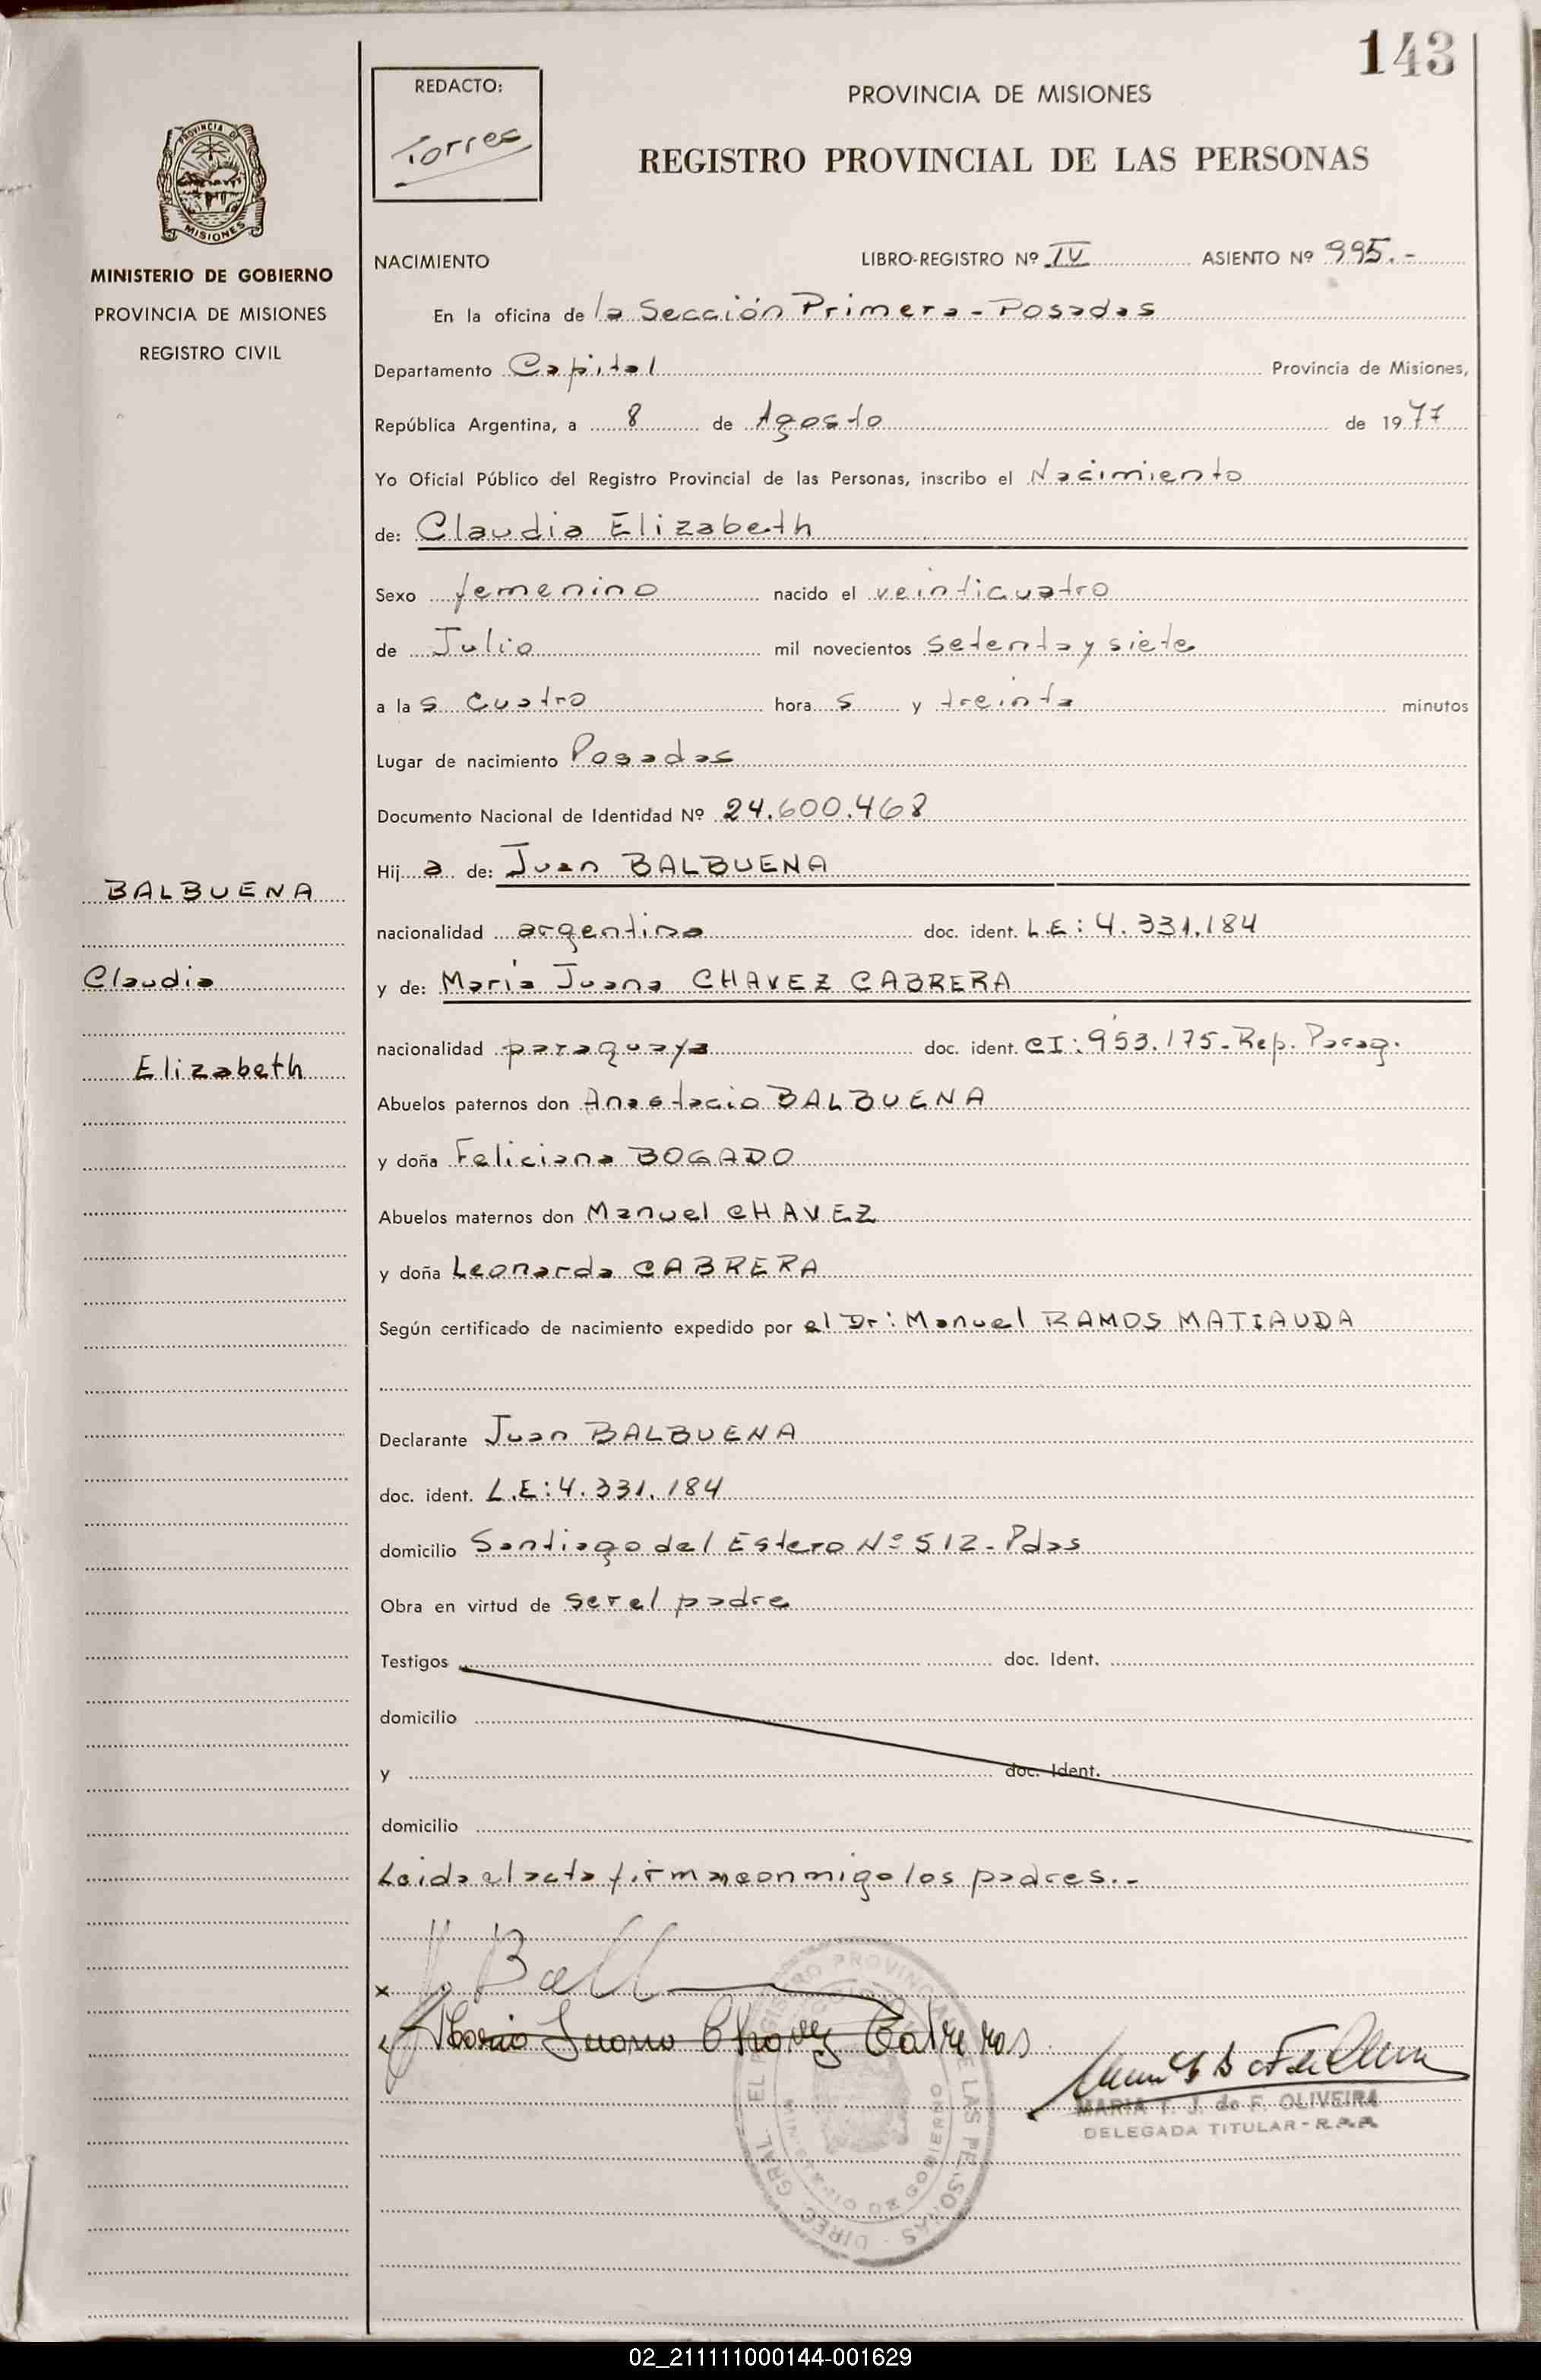 143
REDACTO:
Torres
PROVINCIA DE MISIONES
REGISTRO PROVINCIAL DE LAS PERSONAS
PROVINCIA DE
MISIONES
MINISTERIO DE GOBIERNO
PROVINCIA DE MISIONES
REGISTRO CIVIL
NACIMIENTO LIBRO-REGISTRO Nº IV ASIENTO Nº 995.-
En la oficina de la Sección Primera - Posadas
Departamento Capital Provincia de Misiones,
República Argentina, a 8 de Agosto de 1977
Yo Oficial Público del Registro Provincial de las Personas, inscribo el Nacimiento
de: Claudia Elizabeth
Sexo femenino nacido el veinticuatro
de Julio mil novecientos setenta y siete
a las cuatro horas y treinta minutos
Lugar de nacimiento Posadas
Documento Nacional de Identidad Nº 24.600.468
Hija de: Juan BALBUENA
BALBUENA
nacionalidad argentina doc. ident. L.E: 4.331.184
Claudia
y de: María Juana CHAVEZ CABRERA
nacionalidad paraguaya doc. ident. CI: 953.175-Rep. Parag.
Elizabeth
Abuelos paternos don Anastacio BALBUENA
y doña Feliciana BOGADO
Abuelos maternos don Manuel CHAVEZ
y doña Leonarda CABRERA
Según certificado de nacimiento expedido por el Dr: Manuel RAMOS MATIAUDA
Declarante Juan BALBUENA
doc. ident. L.E: 4.331.184
domicilio Santiago del Estero Nº 512 - Pdas
Obra en virtud de ser el padre
Testigos doc. Ident.
domicilio
y doc. Ident.
domicilio
Leida el acta firman conmigo los padres.-
x
Maria Juana Chavez
MARIA T. J. de F. OLIVEIRA
DELEGADA TITULAR - R.P.P.
02_211111000144-001629